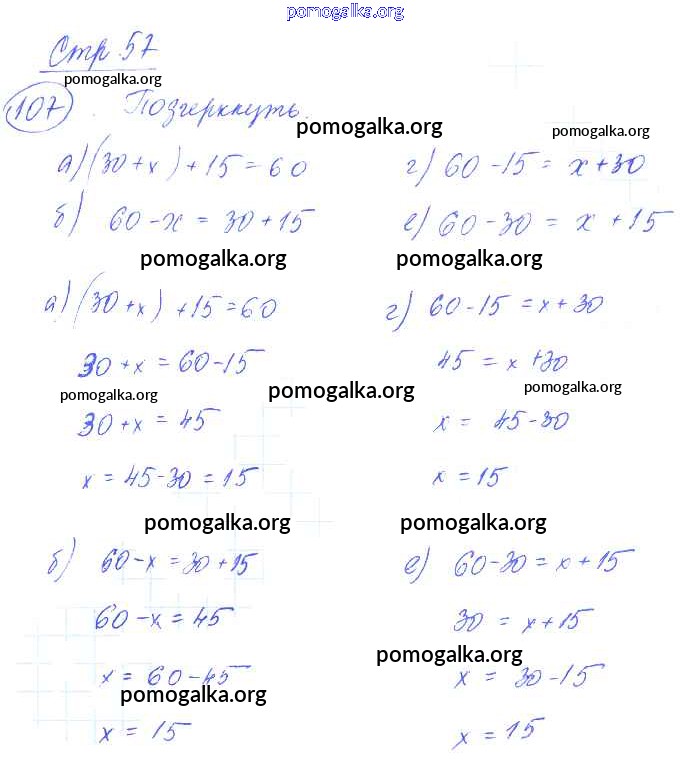 pomogalka.org
Стр 57
pomogalka.org
107. Подчеркнуть.
pomogalka.org
pomogalka.org
а) (30+x)+15=60
г) 60-15= x+30
б) 60-x = 30+15
е) 60-30 = x+15
pomogalka.org
pomogalka.org
а) (30+x)+15=60
30+x = 60-15
pomogalka.org
30+x = 45
x = 45-30 = 15
г) 60-15 = x+30
45 = x+30
pomogalka.org
pomogalka.org
x = 45-30
x = 15
pomogalka.org
pomogalka.org
б) 60-x = 30+15
60-x = 45
x = 60-45
pomogalka.org
x = 15
е) 60-30 = x+15
30 = x+15
pomogalka.org
x = 30-15
x = 15